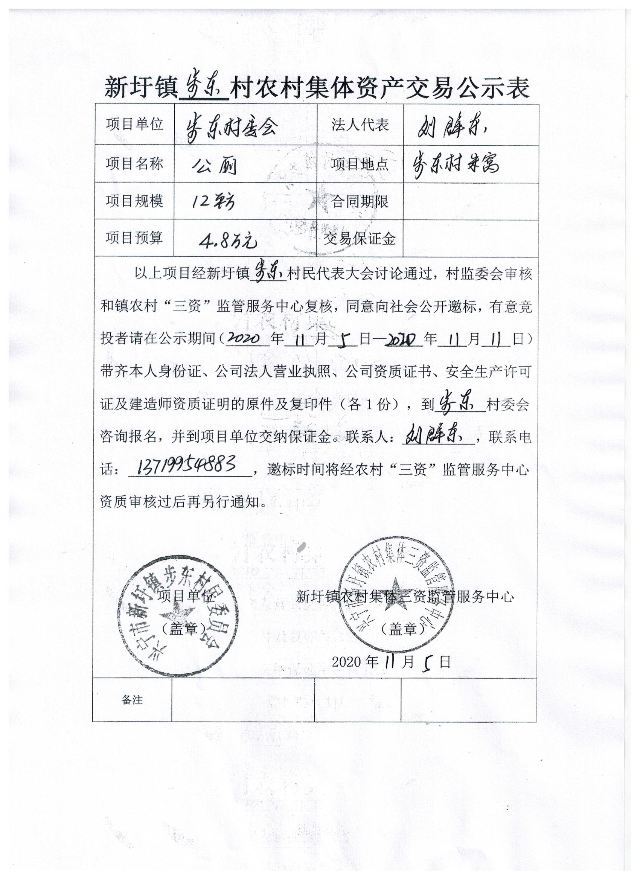 新圩镇步东村农村集体资产交易公示表
项目单位 步东村委会 法人代表 刘辉东
项目名称 公厕 项目地点 步东村朱窝
项目规模 12平方 合同期限
项目预算 4.8万元 交易保证金
以上项目经新圩镇步东村民代表大会讨论通过，村监委会审核
和镇农村“三资”监管服务中心复核，同意向社会公开邀标，有意竞
投者请在公示期间（2020年11月5日—2020年11月11日）
带齐本人身份证、公司法人营业执照、公司资质证书、安全生产许可
证及建造师资质证明的原件及复印件（各1份），到步东村委会
咨询报名，并到项目单位交纳保证金。联系人：刘辉东，联系电
话：13719954883，邀标时间将经农村“三资”监管服务中心
资质审核过后再另行通知。
兴宁市新圩镇步东村民委员会
兴宁市新圩镇农村集体三资监管服务中心
项目单位 新圩镇农村集体三资监管服务中心
（盖章） （盖章）
2020年11月5日
备注